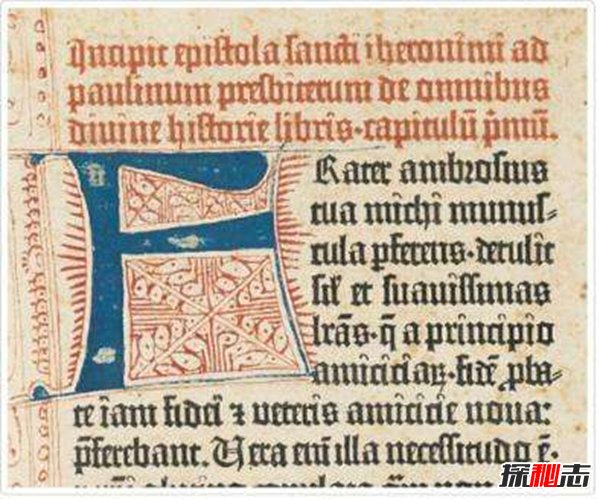 Incipit epistola sancti iheronimi ad
paulinum presbiterum de omnibus
divine historie libris·capitulū p̄mū.
Frater ambrosius
tua michi munus⸗
cula p̄ferens·detulit
sil̄ et suavissimas
lr̄as·q̄ a principio
amiciciaꝝ·fidē ꝓba⸗
te iam fidei ⁊ veteris amicicie nova:
p̄ferebant. Vera eni̅ illa necessitudo ē·
探秘志